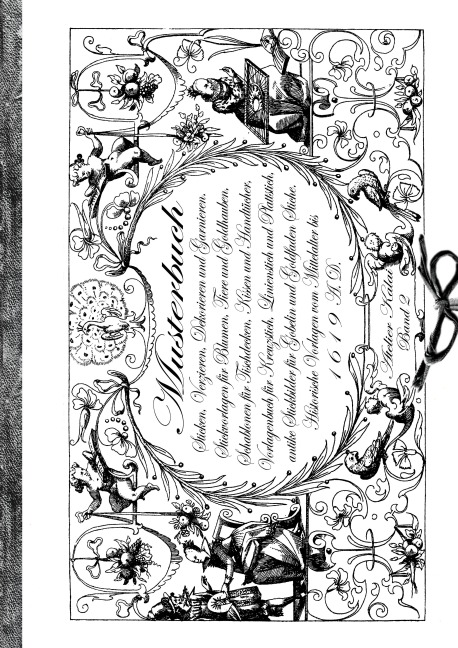 Musterbuch
Sticken, Verzieren, Dekorieren und Garnieren,
Stickvorlagen für Blumen, Tiere und Goldhauben,
Schablonen für Tischdecken, Kissen und Handtücher,
Vorlagenbuch für Kreuzstich, Linienstich und Plattstich,
antike Stickbilder für Gobelin und Goldfaden Sticke.
Historische Vorlagen vom Mittelalter bis
1619 A.D.
Atelier Kaluza
Band 2